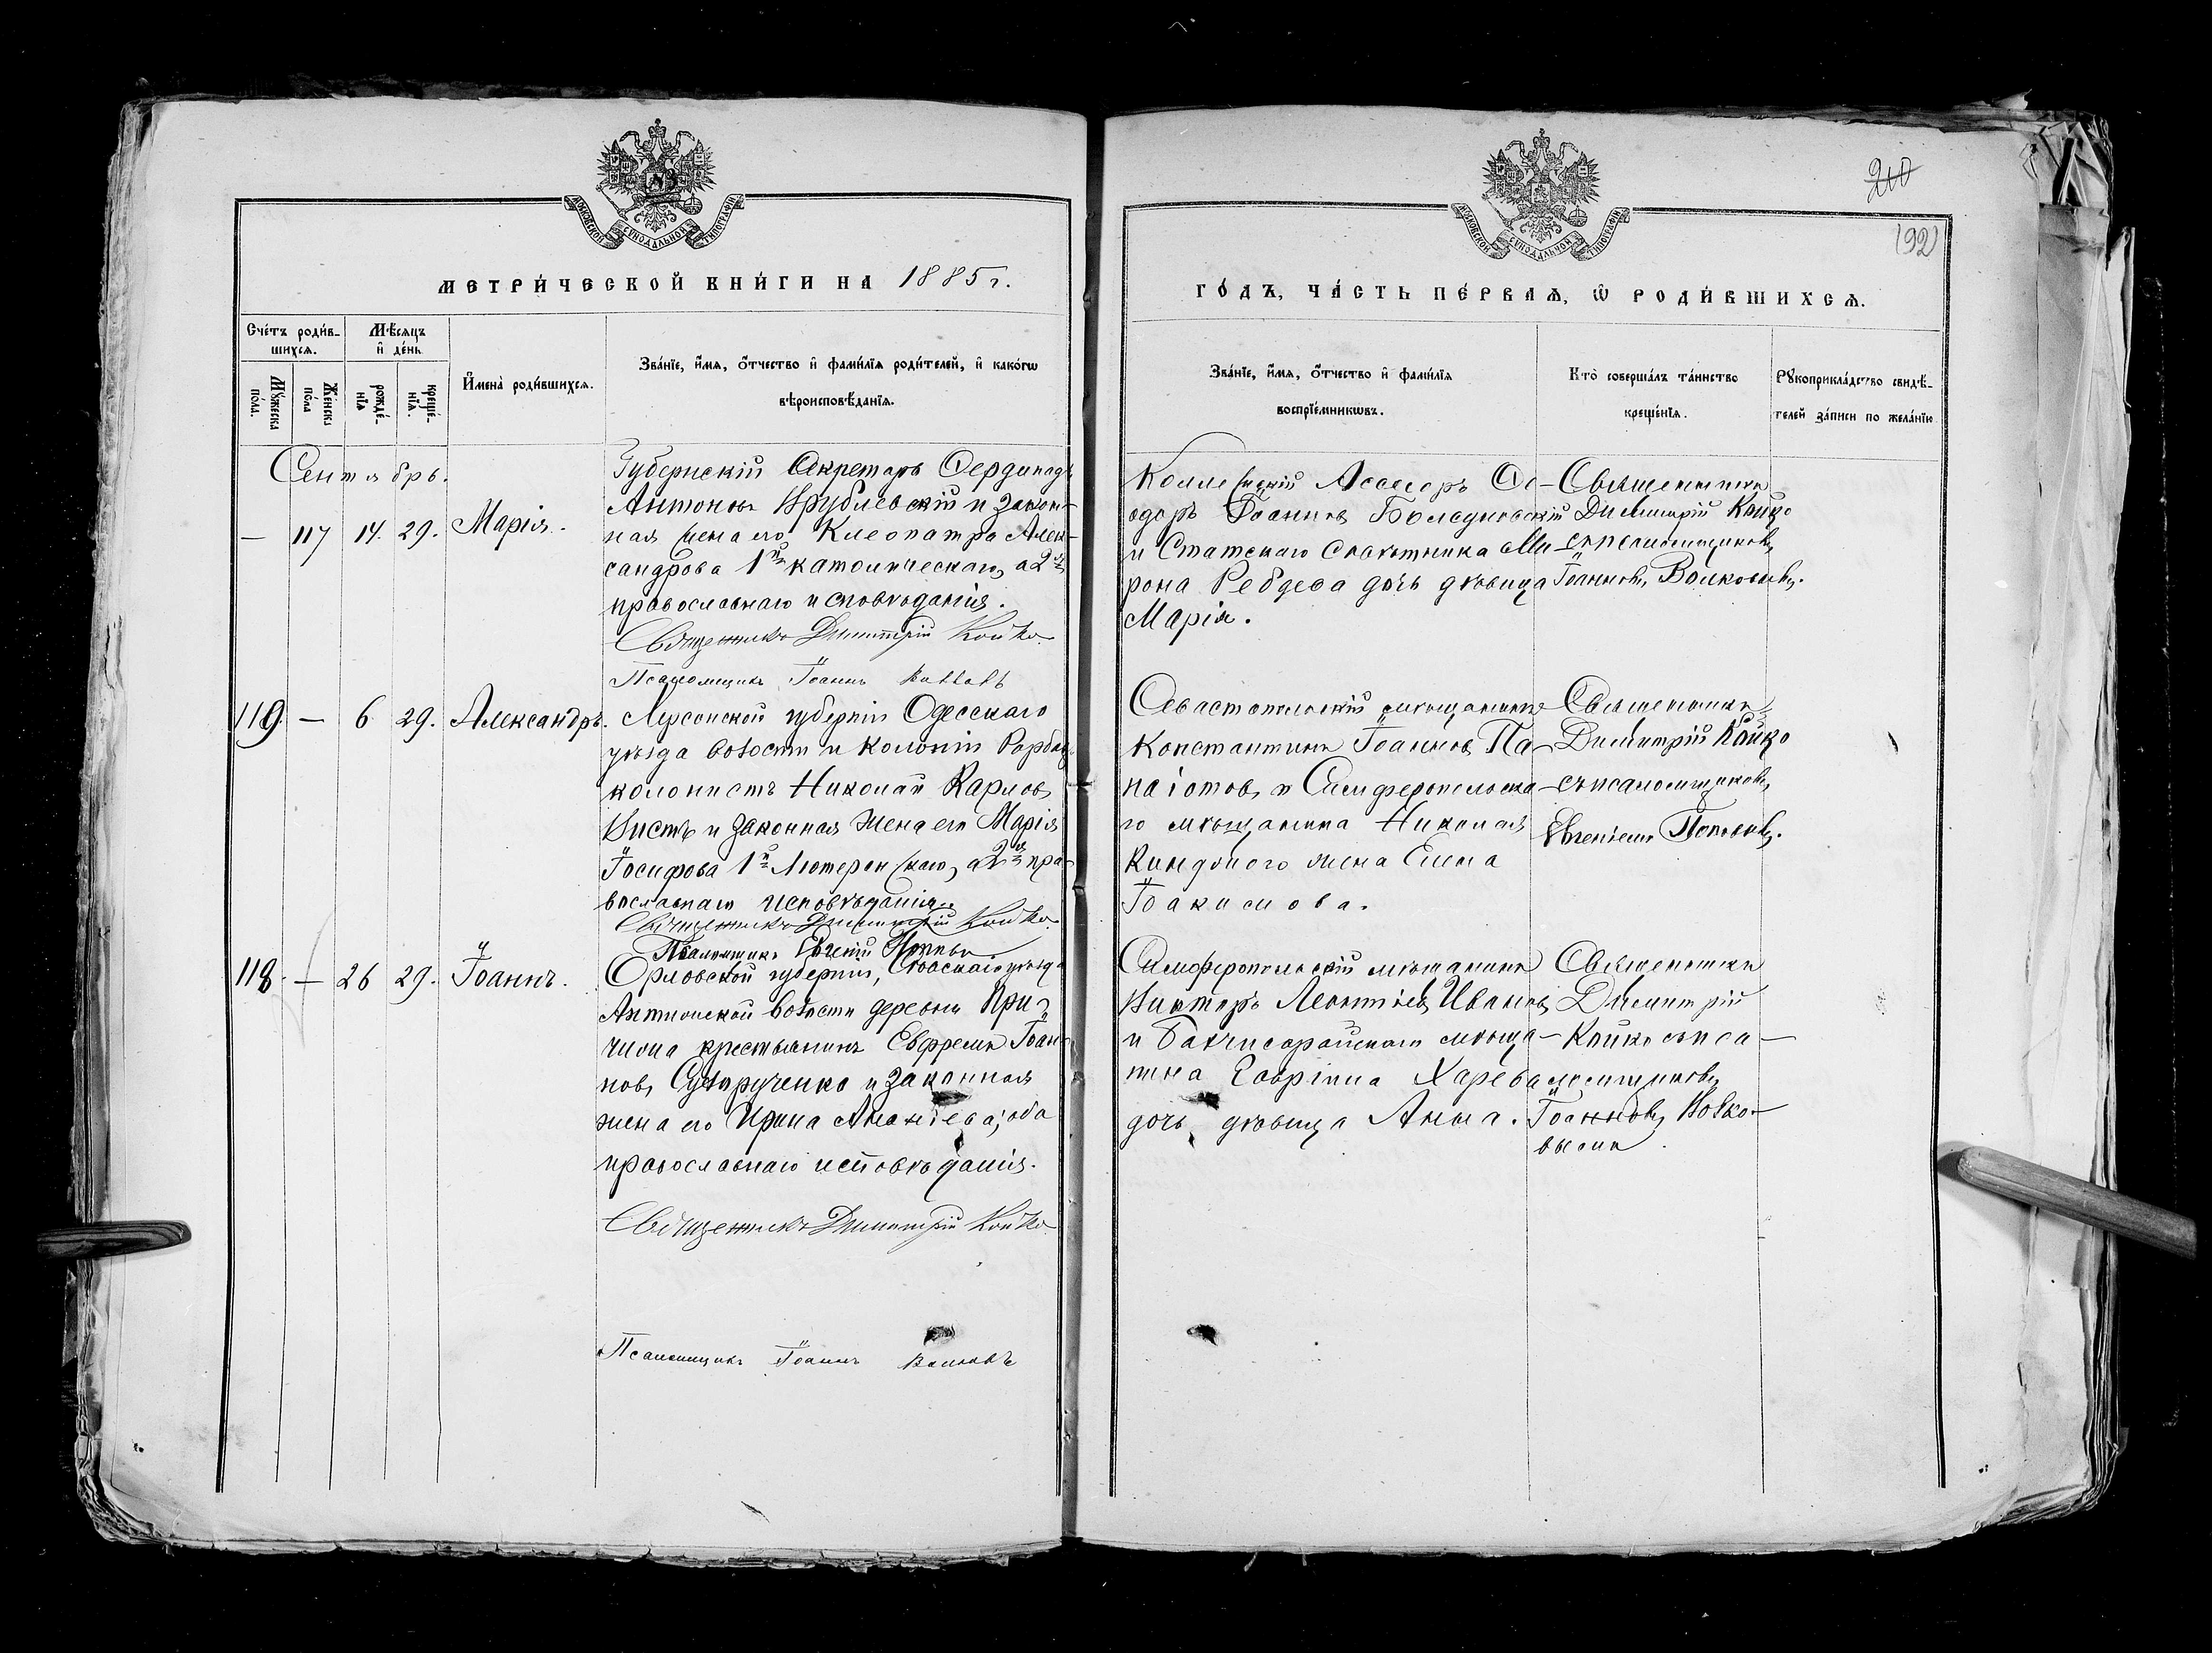 МОСКОВСКОЙ СУНОДАЛЬНОЙ ТИПОГРАФІИ
МЕТРИ́ЧЕСКОЙ КНИ́ГИ НА 1885 г.
Сче́тъ роди́в-
шихсѧ.
Мѣ́сѧцъ
и҆ де́нь
Мꙋ́жеска
по́ла.
Же́нска
по́ла
рожде́-
нїѧ
креще́-
нїѧ.
И҆мена̀ роди́вшихсѧ.
Зва́нїе, и҆́мѧ, ѻ҆́тчество и҆ фами́лїѧ роди́телей, и҆ како́гѡ
вѣроисповѣ́данїѧ.
Сентябрь.
— 117 14. 29. Марія.
Губернскій Секретарь Фердинадъ
Антоновъ Врублевскій и закон-
ная жена его Клеопатра Алек-
сандрова 1й католическаго, а 2я
православнаго исповѣданія.
Священникъ Димитрій Койко
Псаломщикъ Іоаннъ
119 — 6 29. Александръ.
Херсонской губерніи Одесскаго
уѣзда волости и колоніи
колонистъ Николай Карловъ
и законная жена его Марія
Іосифова 1й Лютеранскаго, а 2я пра-
вославнаго исповѣданія.
Священникъ Димитрій Койко
Псаломщикъ Евгеній Поповъ
118. — 26 29. Іоаннъ.
Орловской губерніи, Сѣвскаго уѣзда
волости деревни
крестьянинъ Ефремъ Іоан-
новъ и законная
жена его Ирина Ананіева; оба
православнаго исповѣданія.
Священникъ Димитрій Койко
Псаломщикъ Іоаннъ
МОСКОВСКОЙ СУНОДАЛЬНОЙ ТИПОГРАФІИ
210
192
ГО́ДЪ, ЧА́СТЬ ПЕ́РВАѦ, Ѽ РОДИ́ВШИХСѦ.
Зва́нїе, и҆́мѧ, ѻ҆́тчество и҆ фами́лїѧ
воспрїе́мникѡвъ.
Кто̀ соверша́лъ та́инство
креще́нїѧ.
Рꙋкоприкла́дство свидѣ́-
телей за́писи по жела́нїю
Коллежскій Асессоръ Ѳе-
одоръ Іоанновъ
и Статскаго Совѣтника Ми-
рона Ребдева дочь дѣвица
Марія.
Священникъ
Димитрій Койко
съ псаломщикомъ
Іоанномъ Волковымъ.
Севастопольскій мѣщанинъ
Константинъ Іоанновъ Па-
наіотовъ и Симферопольска-
го мѣщанина Николая
жена Елена
Іоакимова.
Священникъ
Димитрій Койко
съ псаломщикомъ
Евгеніемъ Поповымъ.
Симферопольскій мѣщанинъ
Викторъ Леонтіевъ Ивановъ
и Бахчисарайскаго мѣща-
нина Гавріила Харева
дочь, дѣвица Анна.
Священникъ
Димитрій
Койко съ пса-
ломщикомъ
Іоанномъ Волко-
вымъ